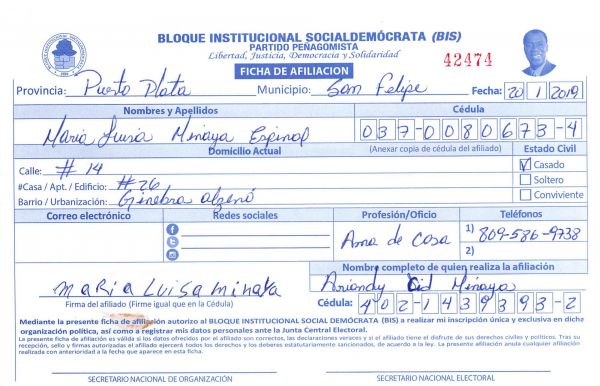 BLOQUE INSTITUCIONAL SOCIALDEMÓCRATA (BIS)
PARTIDO PEÑAGOMISTA
Libertad, Justicia, Democracia y Solidaridad
42474
FICHA DE AFILIACION
Provincia: Puerto Plata Municipio: San Felipe Fecha: 20 1 2019
Nombres y Apellidos Cédula
Maria Luisa Minaya Espinal 037-0080673-4
Domicilio Actual (Anexar copia de cédula del afiliado) Estado Civil
Calle: #14 Casado
#Casa / Apt. / Edificio: #26 Soltero
Barrio / Urbanización: Ginebra Conviviente
Correo electrónico Redes sociales Profesión/Oficio Teléfonos
Ama de Casa 1) 809-586-9738
2)
Nombre completo de quien realiza la afiliación
Maria Luisa Minaya Ariandy Cid Minaya
Firma del afiliado (Firme igual que en la Cédula) Cédula: 402-1439393-2
Mediante la presente ficha de afiliación autorizo al BLOQUE INSTITUCIONAL SOCIAL DEMÓCRATA (BIS) a realizar mi inscripción única y exclusiva en dicha
organización política, así como a registrar mis datos personales ante la Junta Central Electoral.
La presente ficha de afiliación es válida si los datos ofrecidos por el afiliado son correctos, las declaraciones veraces y si el afiliado tiene el disfrute de sus derechos civiles y políticos. Tras su
recepción, sello y firmas autorizadas el afiliado ejercerá todos los derechos y los deberes estatutariamente sancionados, de acuerdo a la ley. La presente afiliación anula cualquier afiliación
realizada con anterioridad a la fecha que aparece en esta ficha.
SECRETARIO NACIONAL DE ORGANIZACIÓN SECRETARIO NACIONAL ELECTORAL